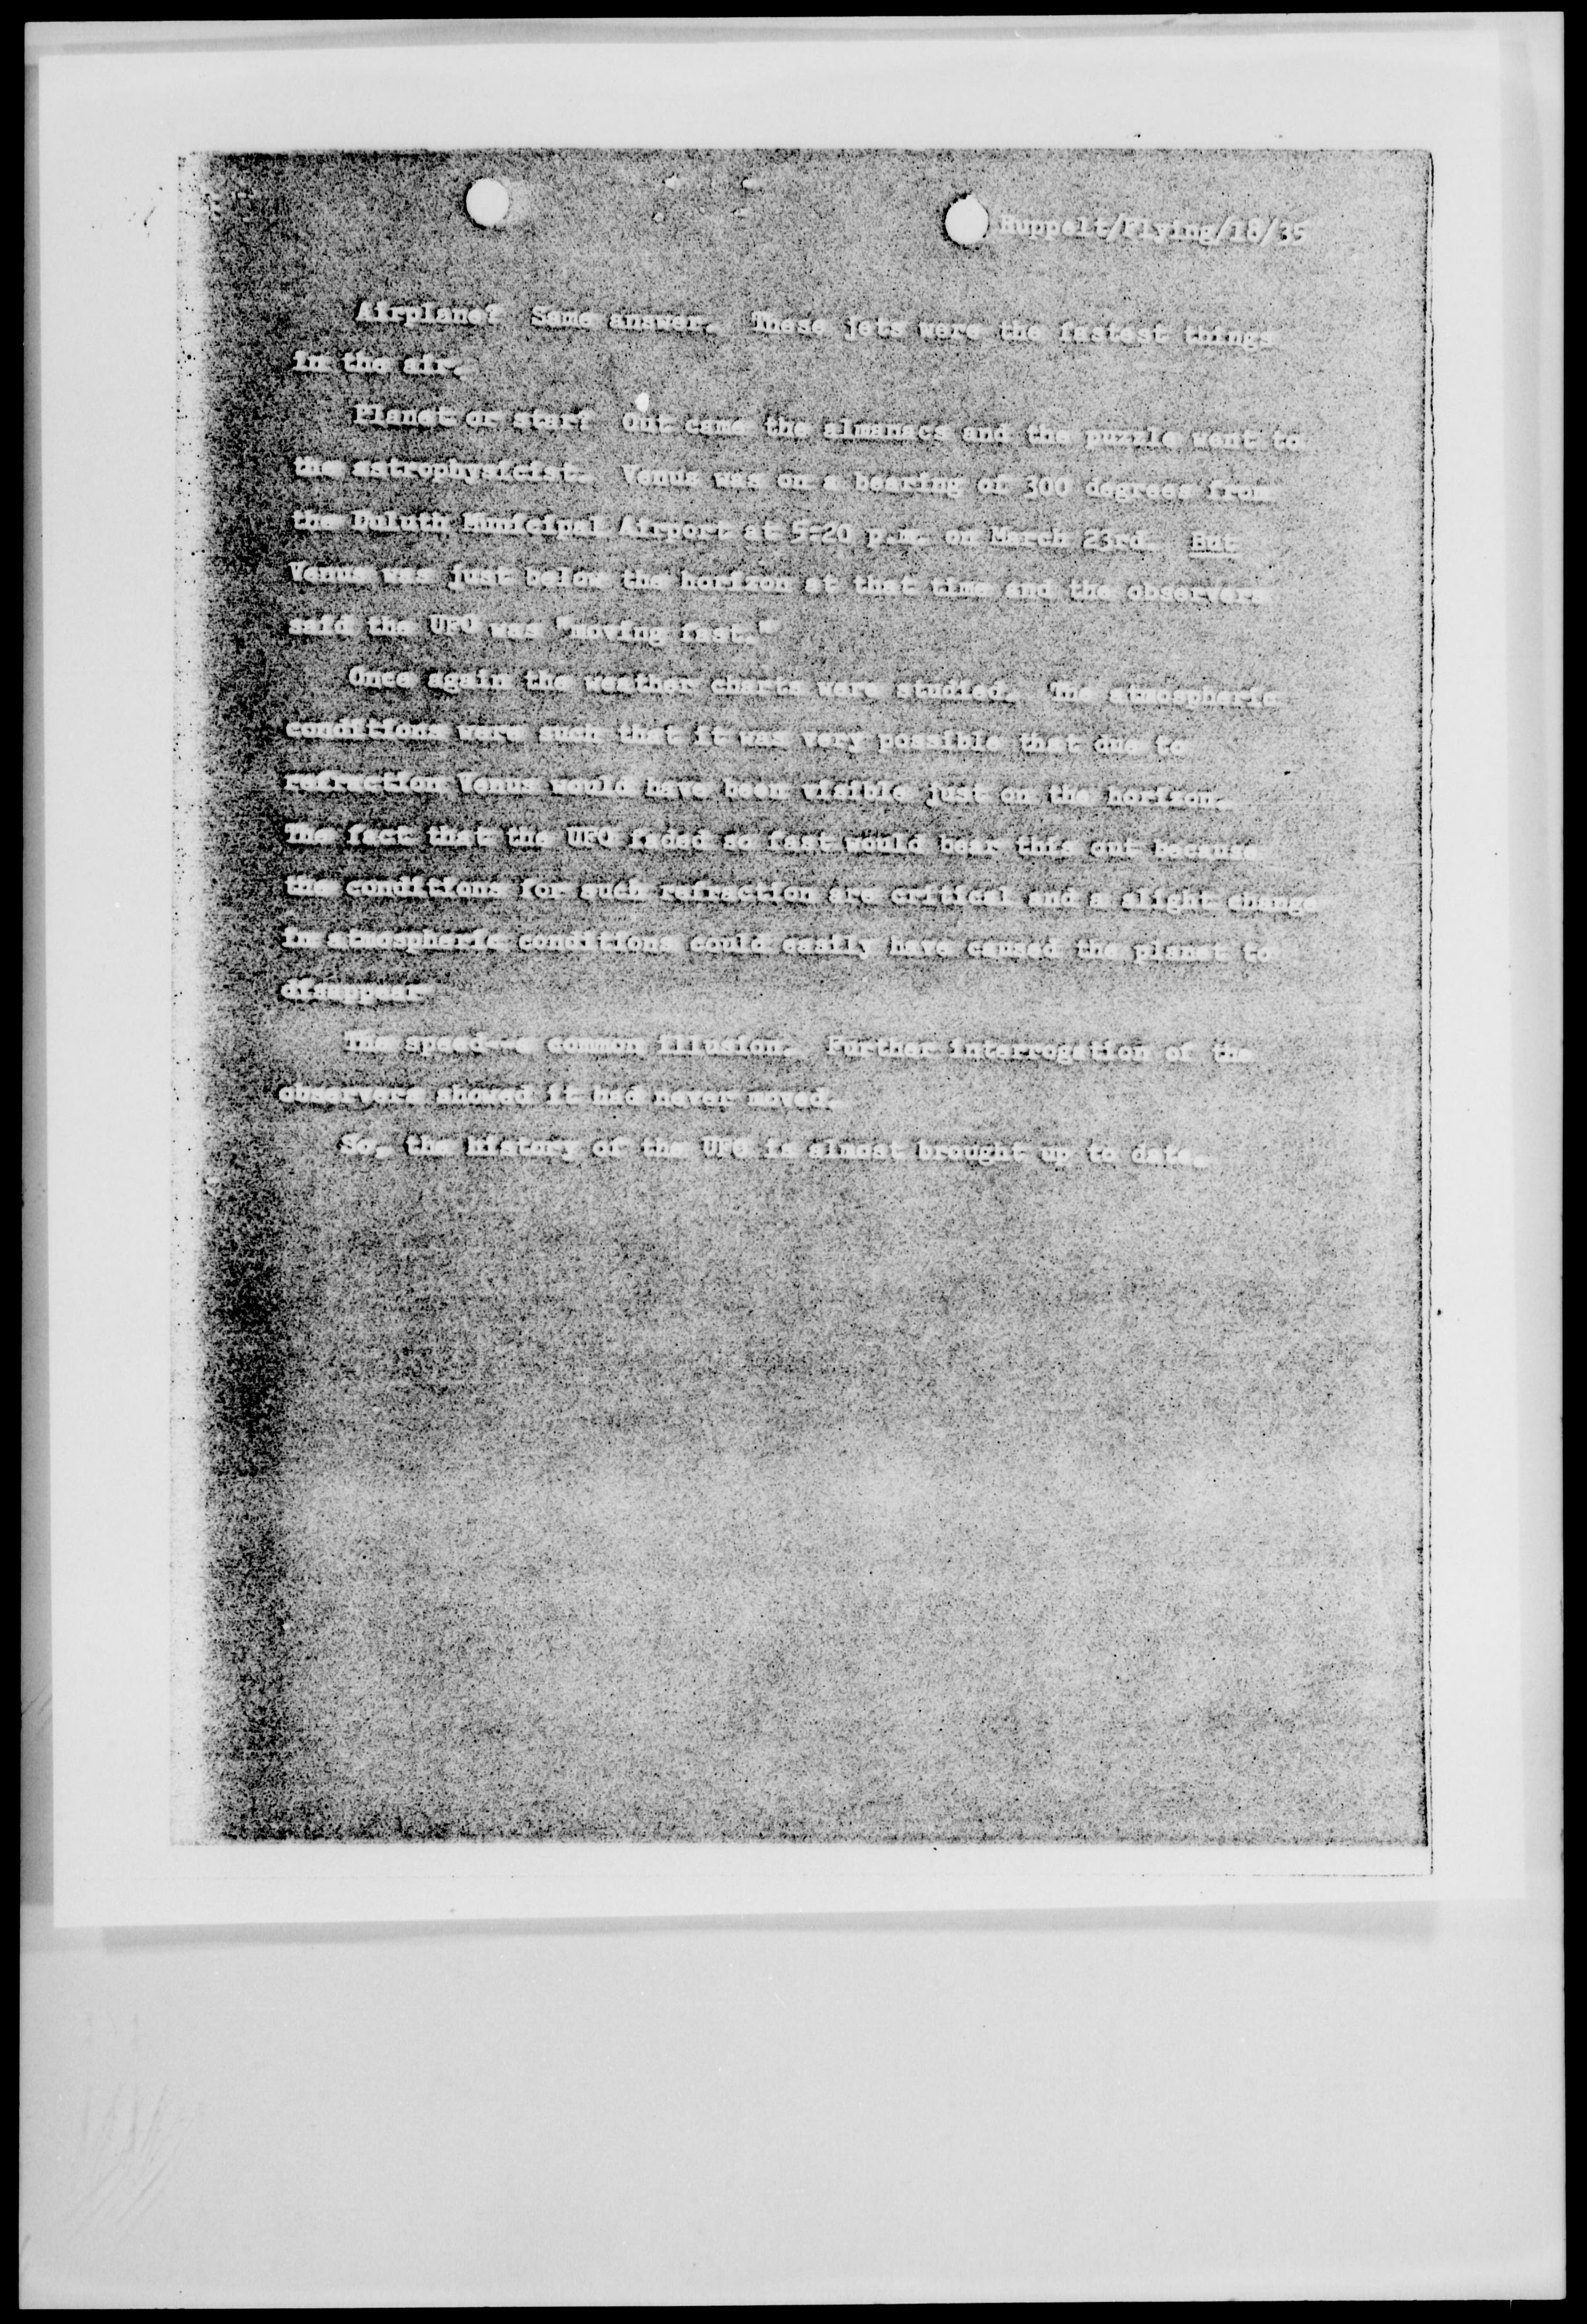 Ruppelt/Flying/18/35
Airplane? Same answer. These jets were the fastest things
in the air.
Planet or star? Out came the almanacs and the puzzle went to
the astrophysicist. Venus was on a bearing of 300 degrees from
the Duluth Municipal Airport at 5:20 p.m. on March 23rd. But
Venus was just below the horizon at that time and the observers
said the UFO was "moving fast."
Once again the weather charts were studied. The atmospheric
conditions were such that it was very possible that due to
refraction Venus would have been visible just on the horizon.
The fact that the UFO faded so fast would bear this out because
the conditions for such refraction are critical and a slight change
in atmospheric conditions could easily have caused the planet to
disappear
The speed--a common illusion. Further interrogation of the
observers showed it had never moved.
So, the history of the UFO is almost brought up to date.